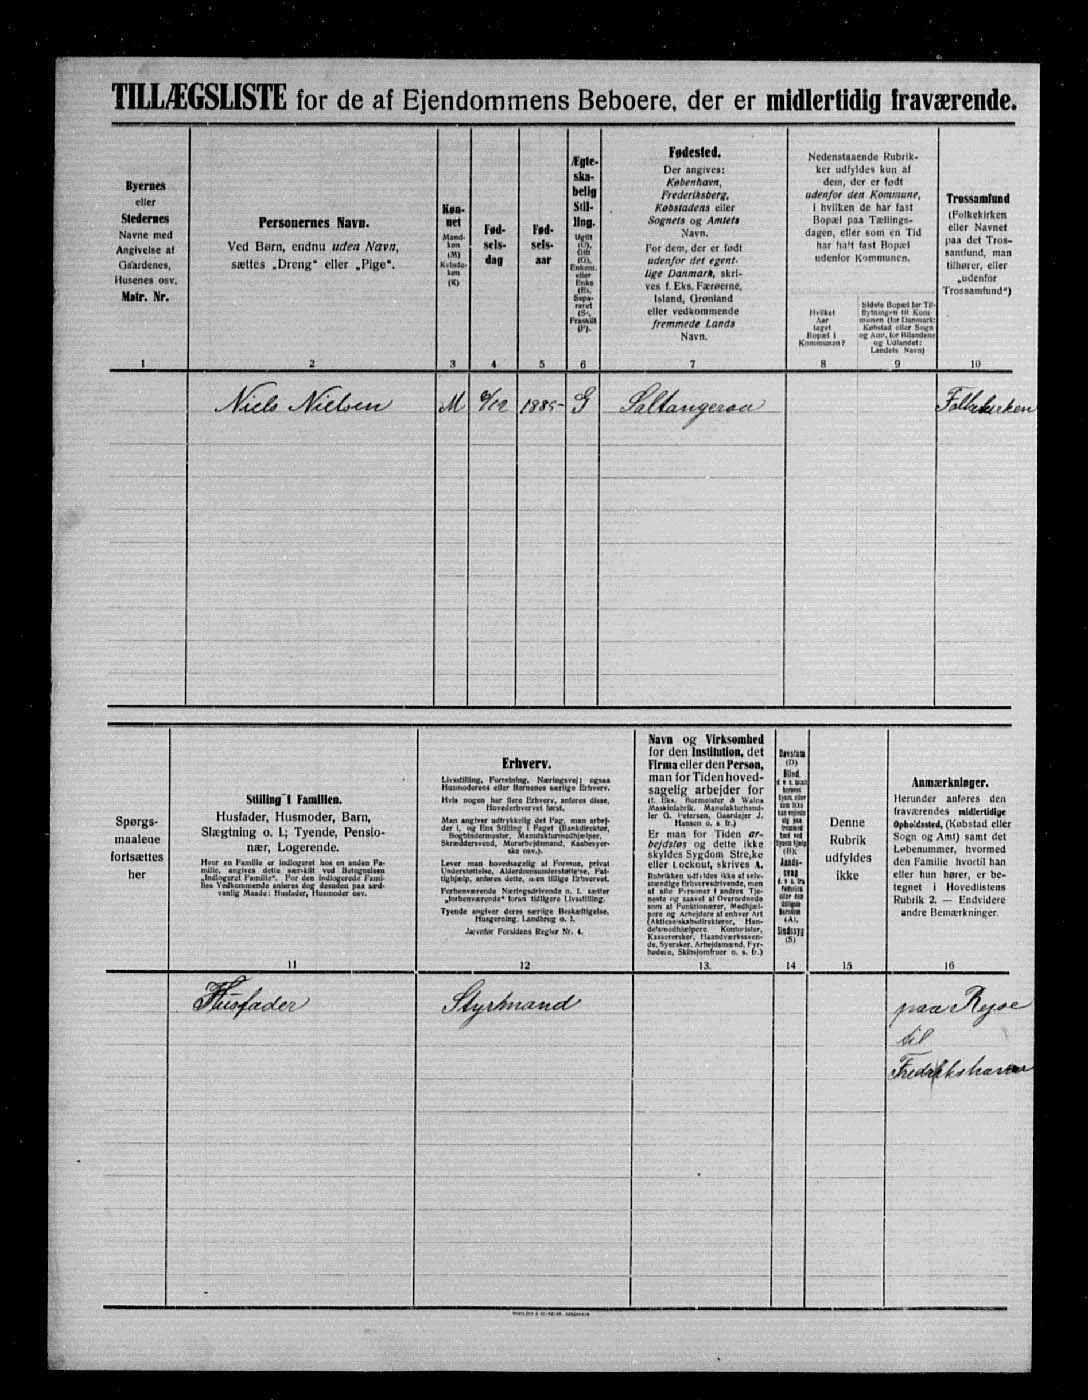 TILLÆGSLISTE for de af Ejendommens Beboere, der er midlertidig fraværende.
Byernes
eller
Stedernes
Navne med
Angivelse af
Gaardenes,
Husenes osv.
Matr. Nr.
1
Personernes Navn.
Ved Børn, endnu uden Navn,
sættes „Dreng“ eller „Pige“.
2
Køn-
net
Mand-
køn
(M)
Kvinde-
køn
(K)
3
Fød-
sels-
dag
4
Fød-
sels-
aar
5
Ægte-
ska-
belig
Stil-
ling.
Ugift
(U),
Gift
(G),
Enkem.
eller
Enke
(E),
Sepa-
reret
(S),
Fraskilt
(F).
6
Fødested.
Der angives:
København,
Frederiksberg,
Købstadens eller
Sognets og Amtets
Navn.
For dem, der er født
udenfor det egent-
lige Danmark, skri-
ves f. Eks. Færøerne,
Island, Grønland
eller vedkommende
fremmede Lands
Navn.
7
Nedenstaaende Rubrik-
ker udfyldes kun af
dem, der er født
udenfor den Kommune,
i hvilken de har fast
Bopæl paa Tællings-
dagen, eller som en Tid
har haft fast Bopæl
udenfor Kommunen.
Hvilket
Aar
taget
Bopæl i
Kommunen?
8
Sidste Bopæl før Til-
flytningen til Kom-
munen (for Danmark:
Købstad eller Sogn
og Amt, for Bilandene
og Udlandet:
Landets Navn)
9
Trossamfund
(Folkekirken
eller Navnet
paa det Tros-
samfund, man
tilhører, eller
„udenfor
Trossamfund“)
10
Niels Nielsen M 6/12 1885 G Saltangeraa Folkekirken
Spørgs-
maalene
fortsættes
her
Stilling i Familien.
Husfader, Husmoder, Barn,
Slægtning o. l.; Tyende, Pensio-
nær, Logerende.
Hvor en Familie er indlogeret hos en anden Fa-
milie, angives dette særskilt ved Betegnelsen
„Indlogeret Familie“. For den indlogerede Fami-
lies Vedkommende anføres dog desuden paa sæd-
vanlig Maade: Husfader, Husmoder osv.
11
Erhverv.
Livsstilling, Forretning, Næringsvej; ogsaa
Husmoderens eller Børnenes særlige Erhverv.
Hvis nogen har flere Erhverv, anføres disse,
Hovederhvervet først.
Man angiver udtrykkelig det Fag, man arbej-
der i, og Ens Stilling i Faget (Bankdirektør,
Bogbindermester, Manufakturmedhjælper,
Skræddersvend, Murarbejdsmand, Kaabesyer-
ske osv.).
Lever man hovedsagelig af Formue, privat
Understøttelse, Alderdomsunderstøttelse, Fat-
tighjælp, anføres dette, uden tillige Erhvervet.
Forhenværende Næringsdrivende o. l. sætter
„forhenværende“ foran tidligere Livsstilling.
Tyende angiver deres særlige Beskæftigelse,
Husgerning, Landbrug o. l.
Jævnfør Forsidens Regler Nr. 4.
12
Navn og Virksomhed
for den Institution, det
Firma eller den Person,
man for Tiden hoved-
sagelig arbejder for
(f. Eks. Burmeister & Wains
Maskinfabrik, Manufakturhand-
ler G. Petersen, Gaardejer J.
Hansen o. s. fr.)
Er man for Tiden ar-
bejdsløs og dette ikke
skyldes Sygdom Strejke
eller Lockout, skrives A.
Rubrikken udfyldes ikke af selv-
stændige Erhvervsdrivende, men
af alle Personer i andres Tje-
neste og saavel af Overordnede
som af Funktionærer, Medhjæl-
pere og Arbejdere af enhver Art
(Aktieselskabsdirektører, Han-
delsmedhjælpere, Kontorister,
Kassererskер, Haandværkssven-
de, Syersker, Arbejdsmænd, Fyr-
bødere, Skibsjomfruer o. s. fr.)
13.
Døvstum
(D)
Blind,
14
Denne
Rubrik
udfyldes
ikke
15
Anmærkninger.
Herunder anføres den
fraværendes midlertidige
Opholdssted, (Købstad eller
Sogn og Amt) samt det
Løbenummer, hvormed
den Familie hvortil han
eller hun hører, er be-
tegnet i Hovedlistens
Rubrik 2. — Endvidere
andre Bemærkninger.
16
Husfader Styrmand paa Rejse
til
Fredrikshavn